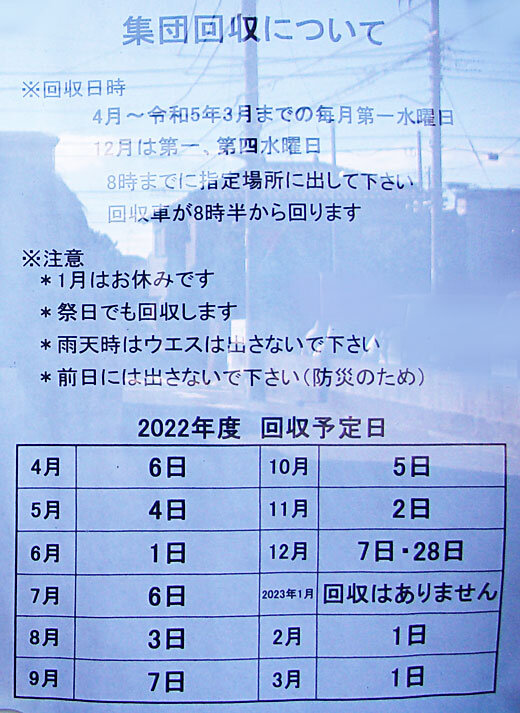 集団回収について
※回収日時
4月～令和5年3月までの毎月第一水曜日
12月は第一、第四水曜日
8時までに指定場所に出して下さい
回収車が8時半から回ります
※注意
＊1月はお休みです
＊祭日でも回収します
＊雨天時はウエスは出さないで下さい
＊前日には出さないで下さい（防災のため）
2022年度 回収予定日
4月 6日 10月 5日
5月 4日 11月 2日
6月 1日 12月 7日・28日
7月 6日 2023年1月 回収はありません
8月 3日 2月 1日
9月 7日 3月 1日